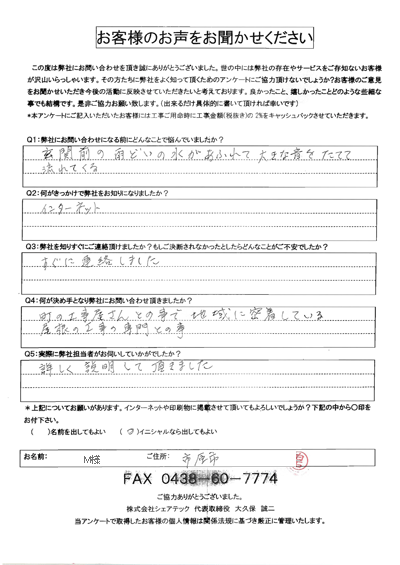 お客様のお声をお聞かせください
この度は弊社にお問い合わせを頂き誠にありがとうございました。世の中には弊社の存在やサービスをご存知ないお客様
が沢山いらっしゃいます。その方たちに弊社をよく知って頂くためのアンケートにご協力頂けないでしょうか?お客様のご意見
をお聞かせいただき今後の活動に反映させていただきたいと考えております。良かったこと、嬉しかったことどのような些細な
事でも結構です。是非ご協力お願い致します。(出来るだけ具体的に書いて頂ければ幸いです)
*本アンケートにご記入いただいたお客様には工事ご用命時に工事金額(税抜き)の2%をキャッシュバックさせていただきます。
Q1:弊社にお問い合わせになる前にどんなことで悩んでいましたか?
玄関前の雨どいの水があふれて大きな音をたてて
流れてくる
Q2:何がきっかけで弊社をお知りになりましたか?
インターネット
Q3:弊社を知りすぐにご連絡頂けましたか?もしご決断されなかったとしたらどんなことがご不安でしたか?
すぐに連絡しました
Q4:何が決め手となり弊社にお問い合わせ頂きましたか?
町の工事屋さんとの事で地域に密着している
屋根の工事の専門との事
Q5:実際に弊社担当者がお伺いしていかがでしたか?
詳しく説明して頂きました
*上記についてお願いがあります。インターネットや印刷物に掲載させて頂いてもよろしいでしょうか?下記の中から〇印を
お付下さい。
( )名前を出してもよい (〇)イニシャルなら出してもよい
お名前: M様 ご住所: 市原市
FAX 0438-60-7774
ご協力ありがとうございました。
株式会社シェアテック 代表取締役 大久保 誠二
当アンケートで取得したお客様の個人情報は関係法規に基づき厳正に管理いたします。